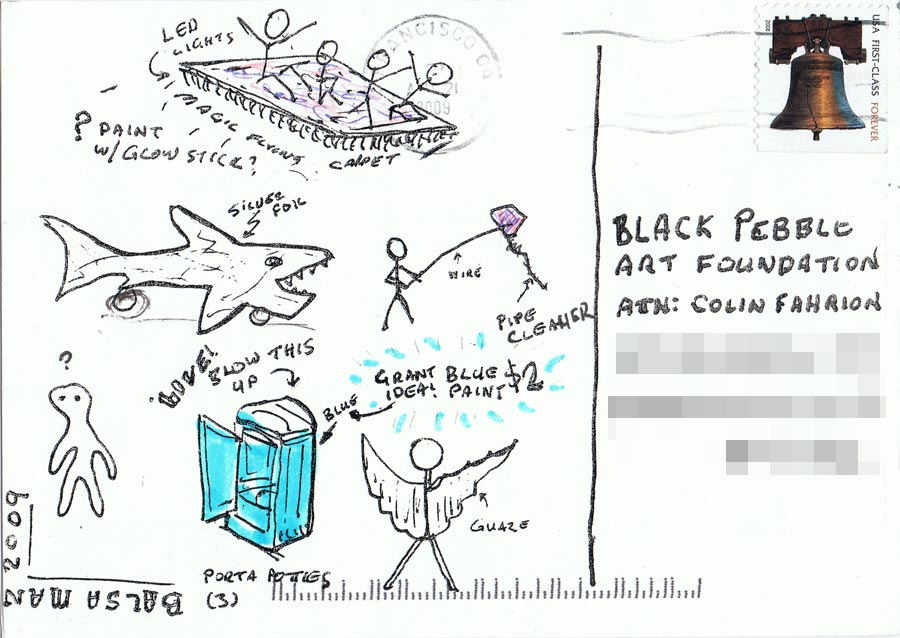 LED
LIGHTS
MAGIC FLYING
CARPET
? PAINT
W/ GLOW STICK?
ANCISCO CA
21
2009
USA FIRST-CLASS FOREVER
SILVER
FOIL
WIRE
PIPE
CLEANER
BLOW THIS
UP
BLUE
GRANT BLUE $2
IDEA! PAINT
?
GUAZE
PORTA POTTIES
(3)
BALSA MAN
2009
BLACK PEBBLE
ART FOUNDATION
ATN: COLIN FAHRION